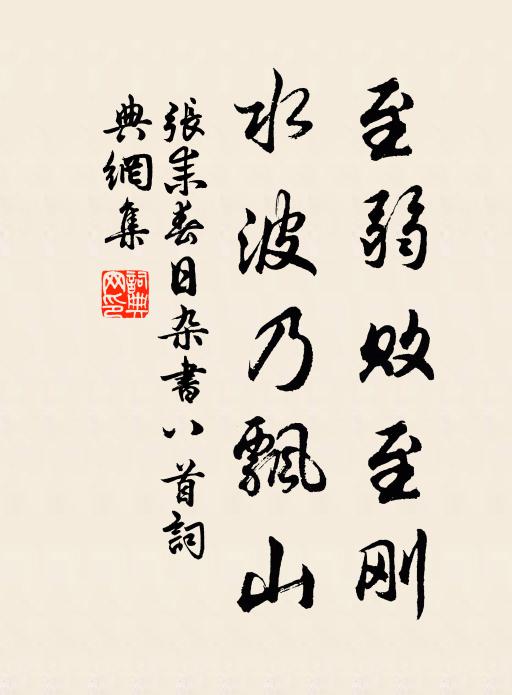 至弱败至刚
水波乃飘山
張耒春日杂書八首詞
典網集
詞典
网印